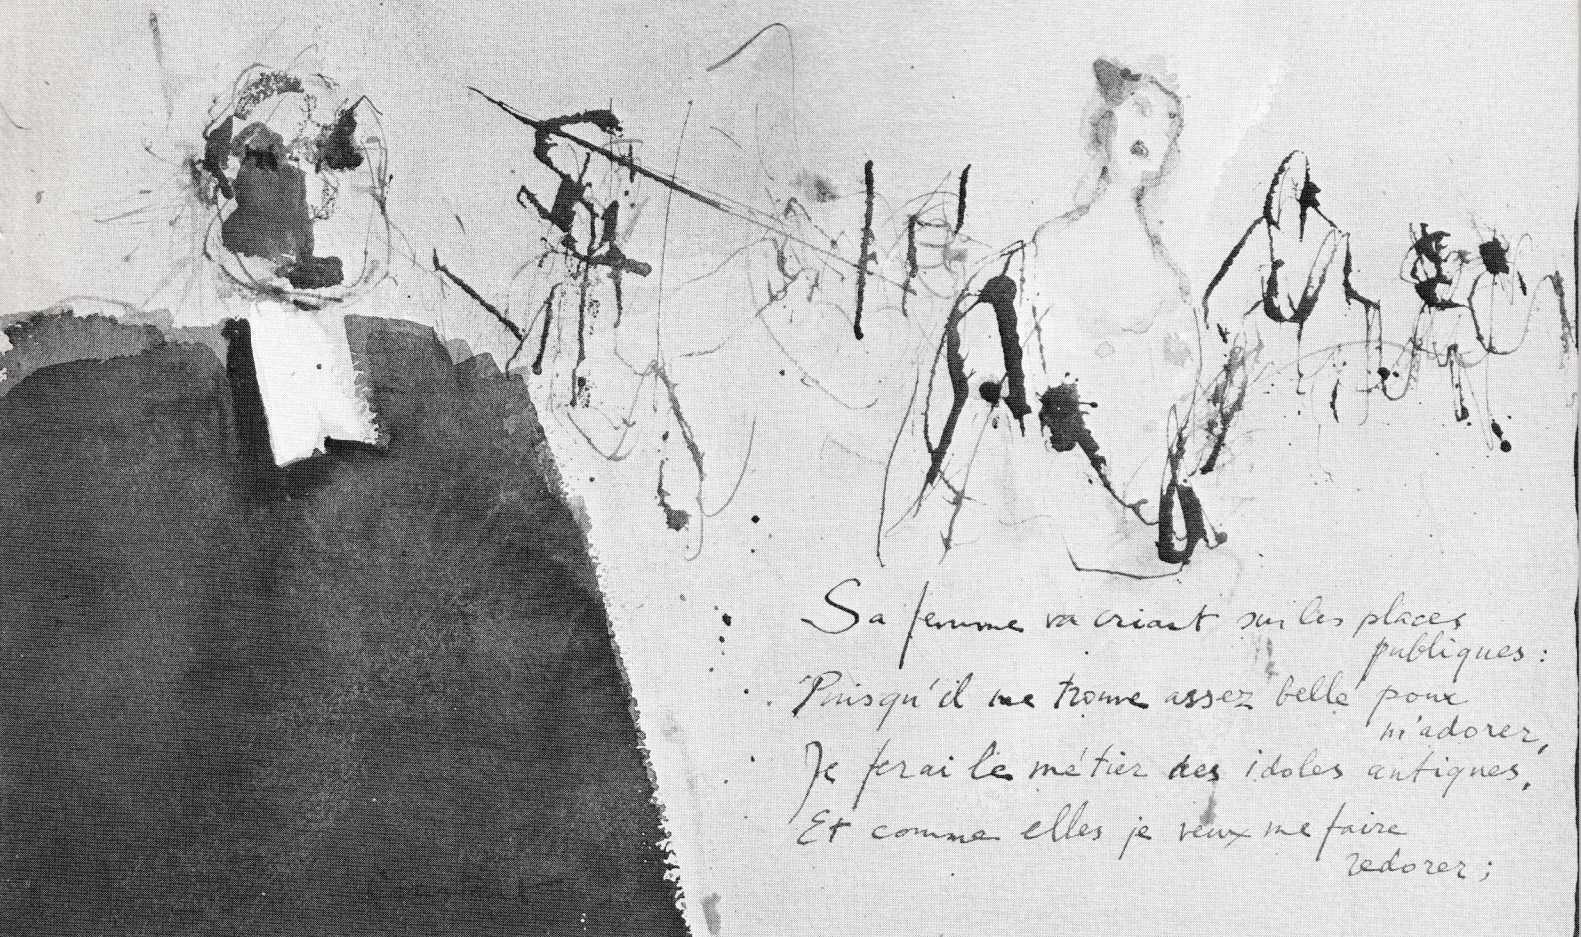 Sa femme va criant sur les places
publiques :
"Puisqu'il me trouve assez belle pour
m'adorer,
Je ferai le métier des idoles antiques,
Et comme elles je veux me faire
redorer ;